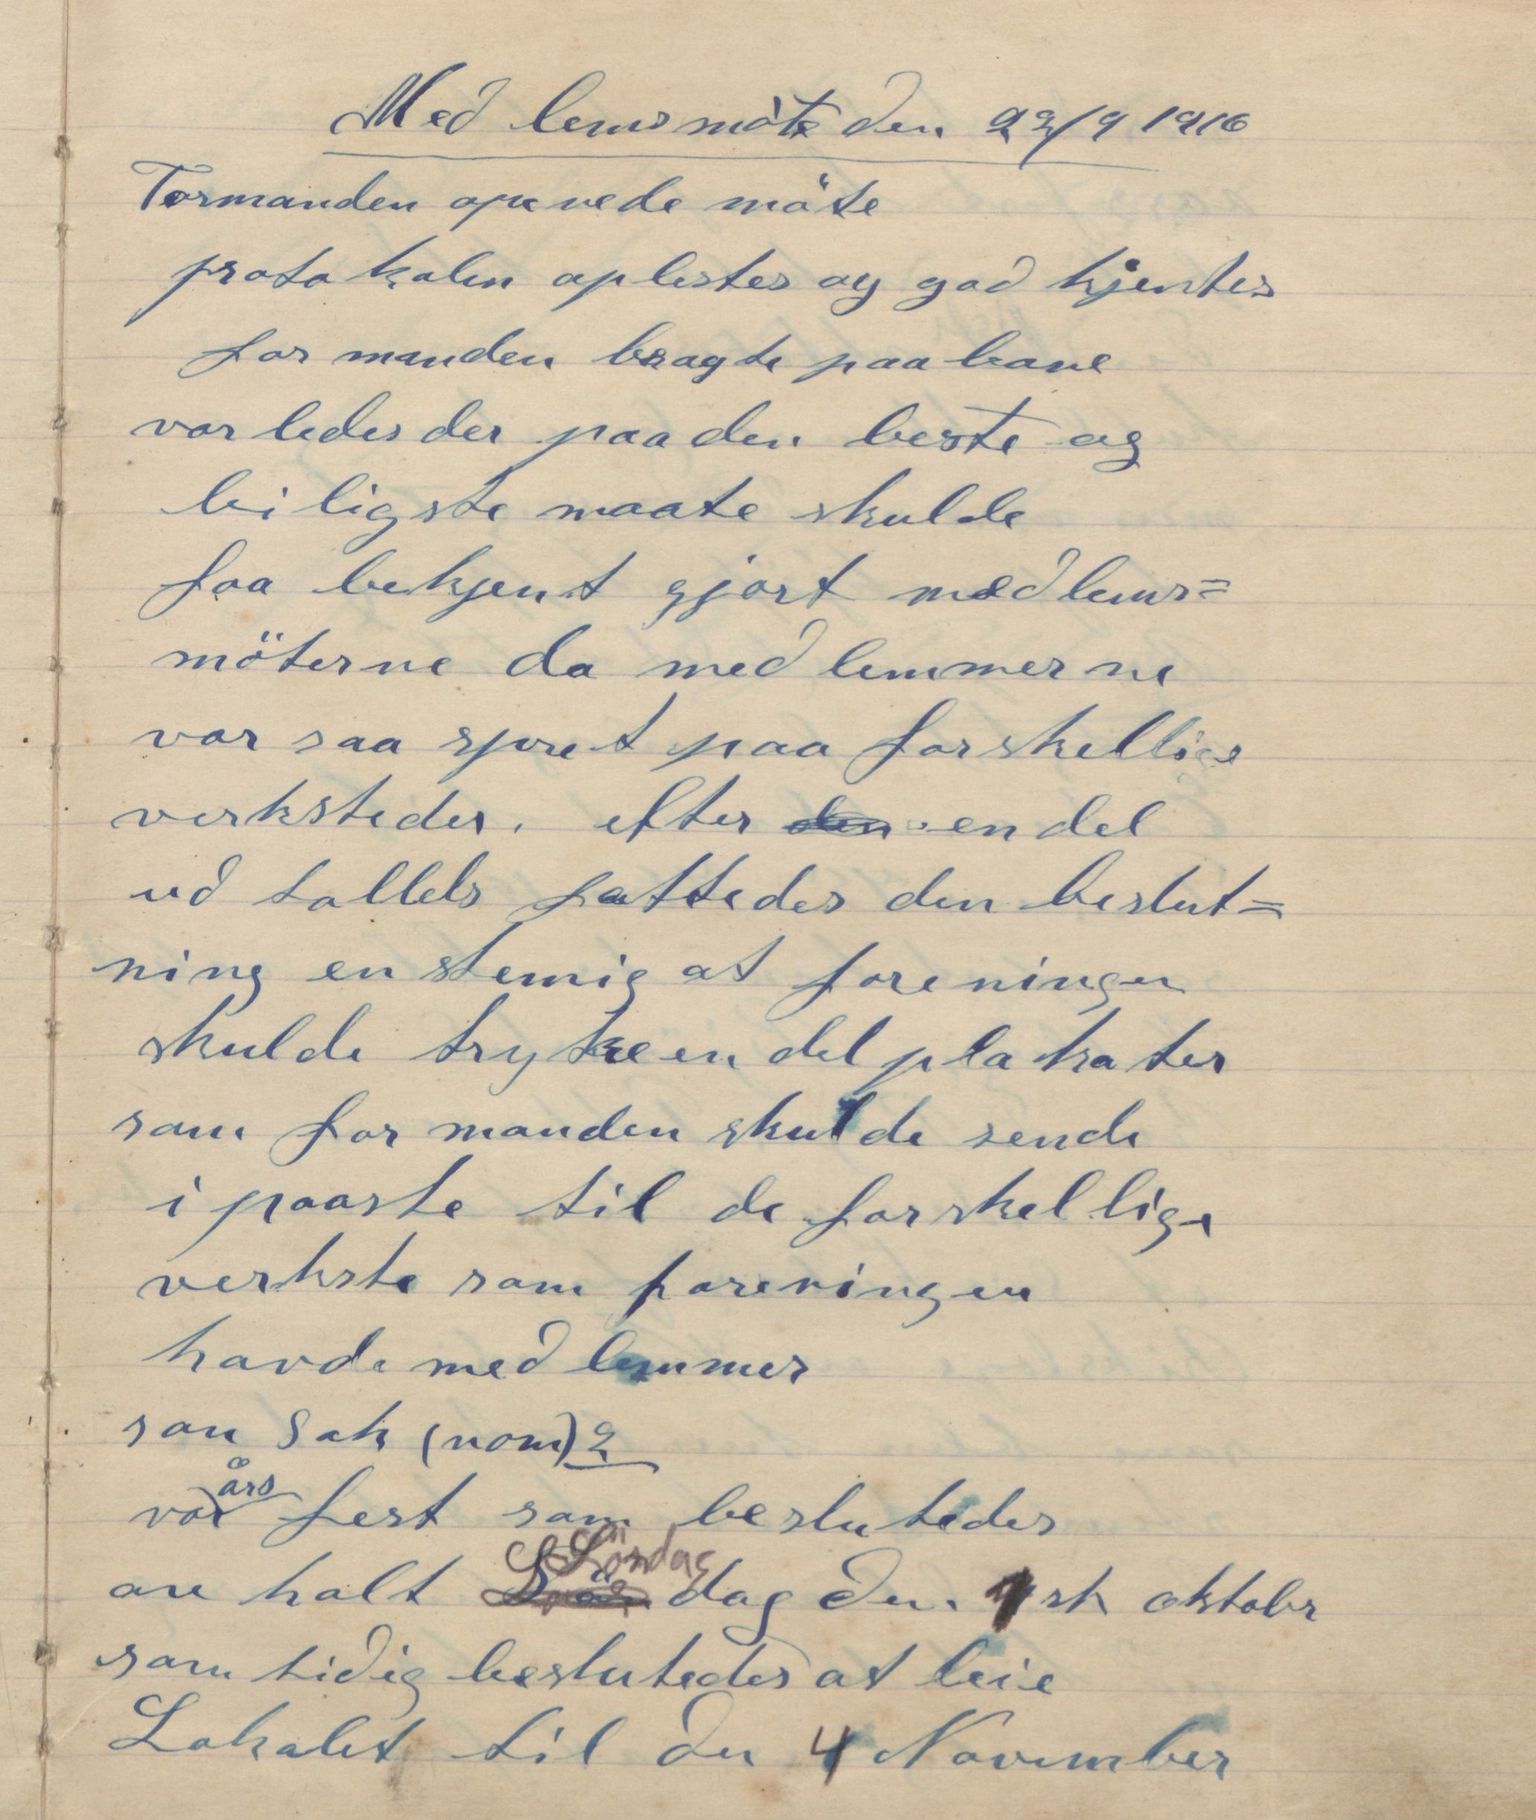 Medlemsmöte den 22/9 1916
Formanden opnevede möte
protokolen oplestes og godkjentes
formanden bragte paa bane
vorledes der paa den beste og
biligste maate skulde
faa bekjentgjort medlems=
möterne da medlemmerne
var saa spret paa forskellige
verksteder. efter den en del
udtallels fattedes den beslut=
ning enstemig at foreningen
skulde tryke en del plakater
som formanden skulde sende
i paaste til de forskellige
verkste som foreningen
havde medlemmer
som Sak (nom) 2
vor års fest som beslutedes
av halt Löndag dag den 1ste oktober
samtidig beslutedes at leie
Lokalet til den 4 November